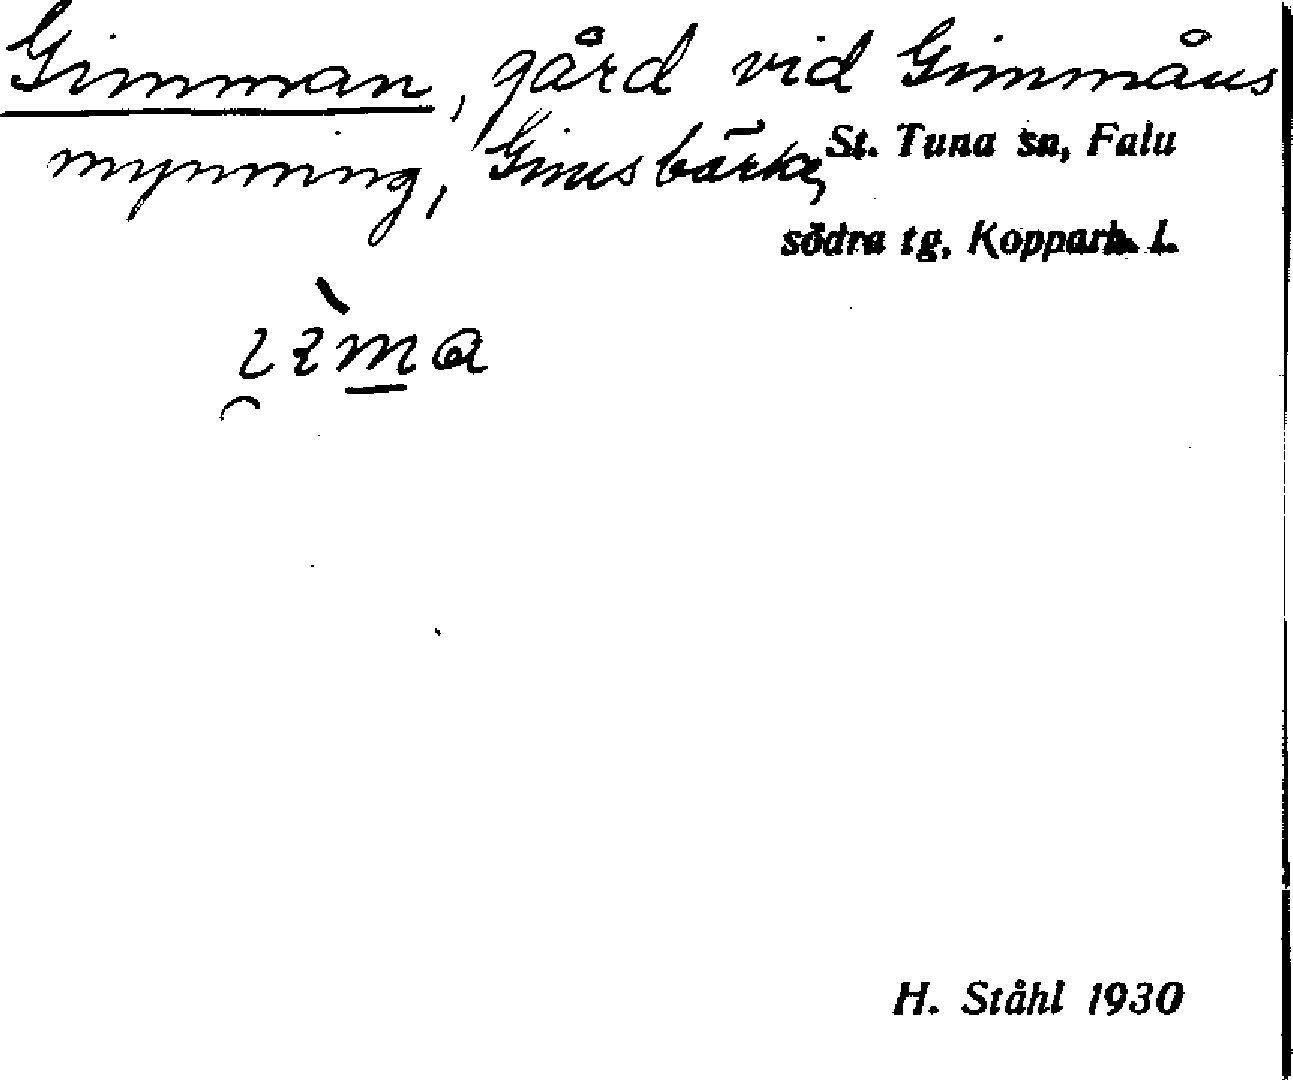 Gimman, gård vid Gimmåns
mynning, Ginsbärke,
St. Tuna sn, Falu
södra tg, Kopparb. l.
H. Ståhl 1930